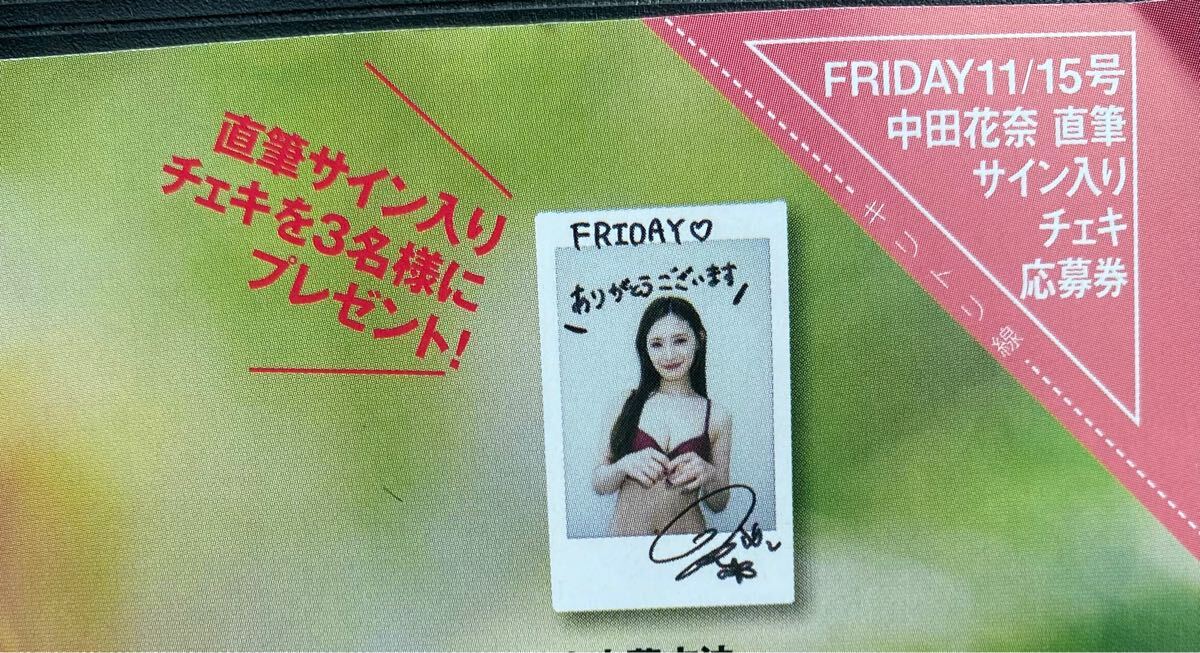 直筆サイン入り
チェキを3名様に
プレゼント!
FRIDAY♡
ありがとうございます
FRIDAY11/15号
中田花奈 直筆
サイン入り
チェキ
応募券
キリトリ線